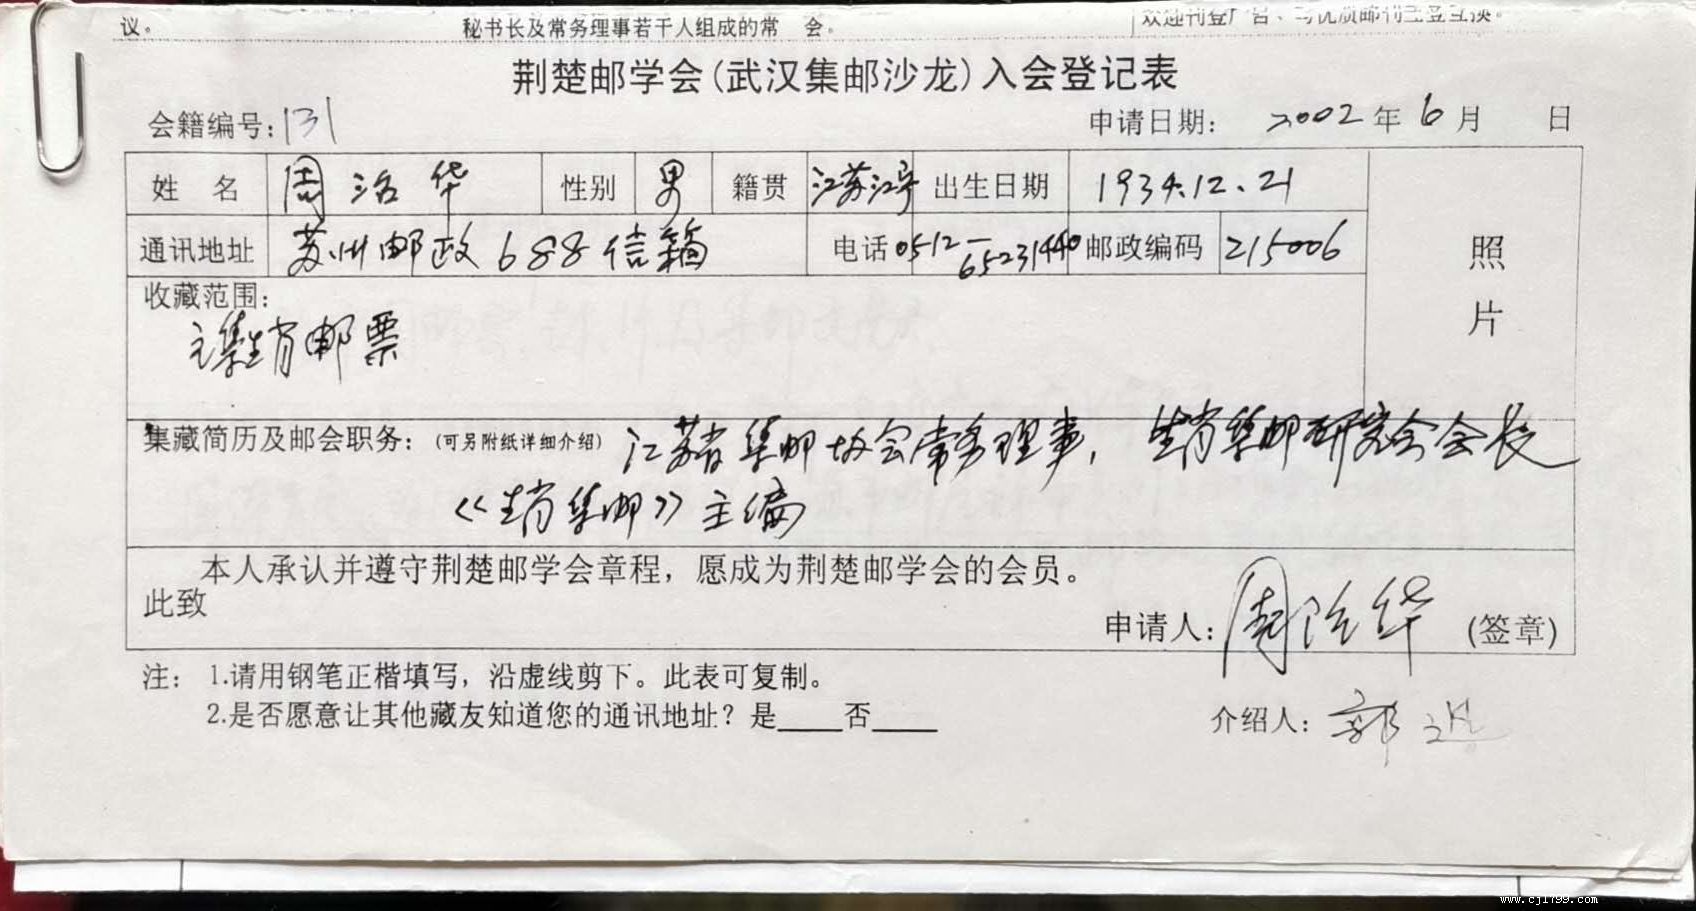 议。 秘书长及常务理事若干人组成的常 会。 欢迎刊登广告、与优质邮刊主登互换。
荆楚邮学会(武汉集邮沙龙)入会登记表
会籍编号:131 申请日期: 2002年6月 日
姓 名 周治华 性别 男 籍贯 江苏江宁 出生日期 1934.12.21
通讯地址 苏州邮政688信箱 电话 0512-65231440 邮政编码 215006
照片
收藏范围:
生肖邮票
集藏简历及邮会职务:(可另附纸详细介绍) 江苏省集邮协会常务理事, 生肖集邮研究会会长
《生肖集邮》主编
本人承认并遵守荆楚邮学会章程，愿成为荆楚邮学会的会员。
此致
申请人:周治华 (签章)
注: 1.请用钢笔正楷填写，沿虚线剪下。此表可复制。
2.是否愿意让其他藏友知道您的通讯地址？是____否____
介绍人: 郭
www.cjl799.com